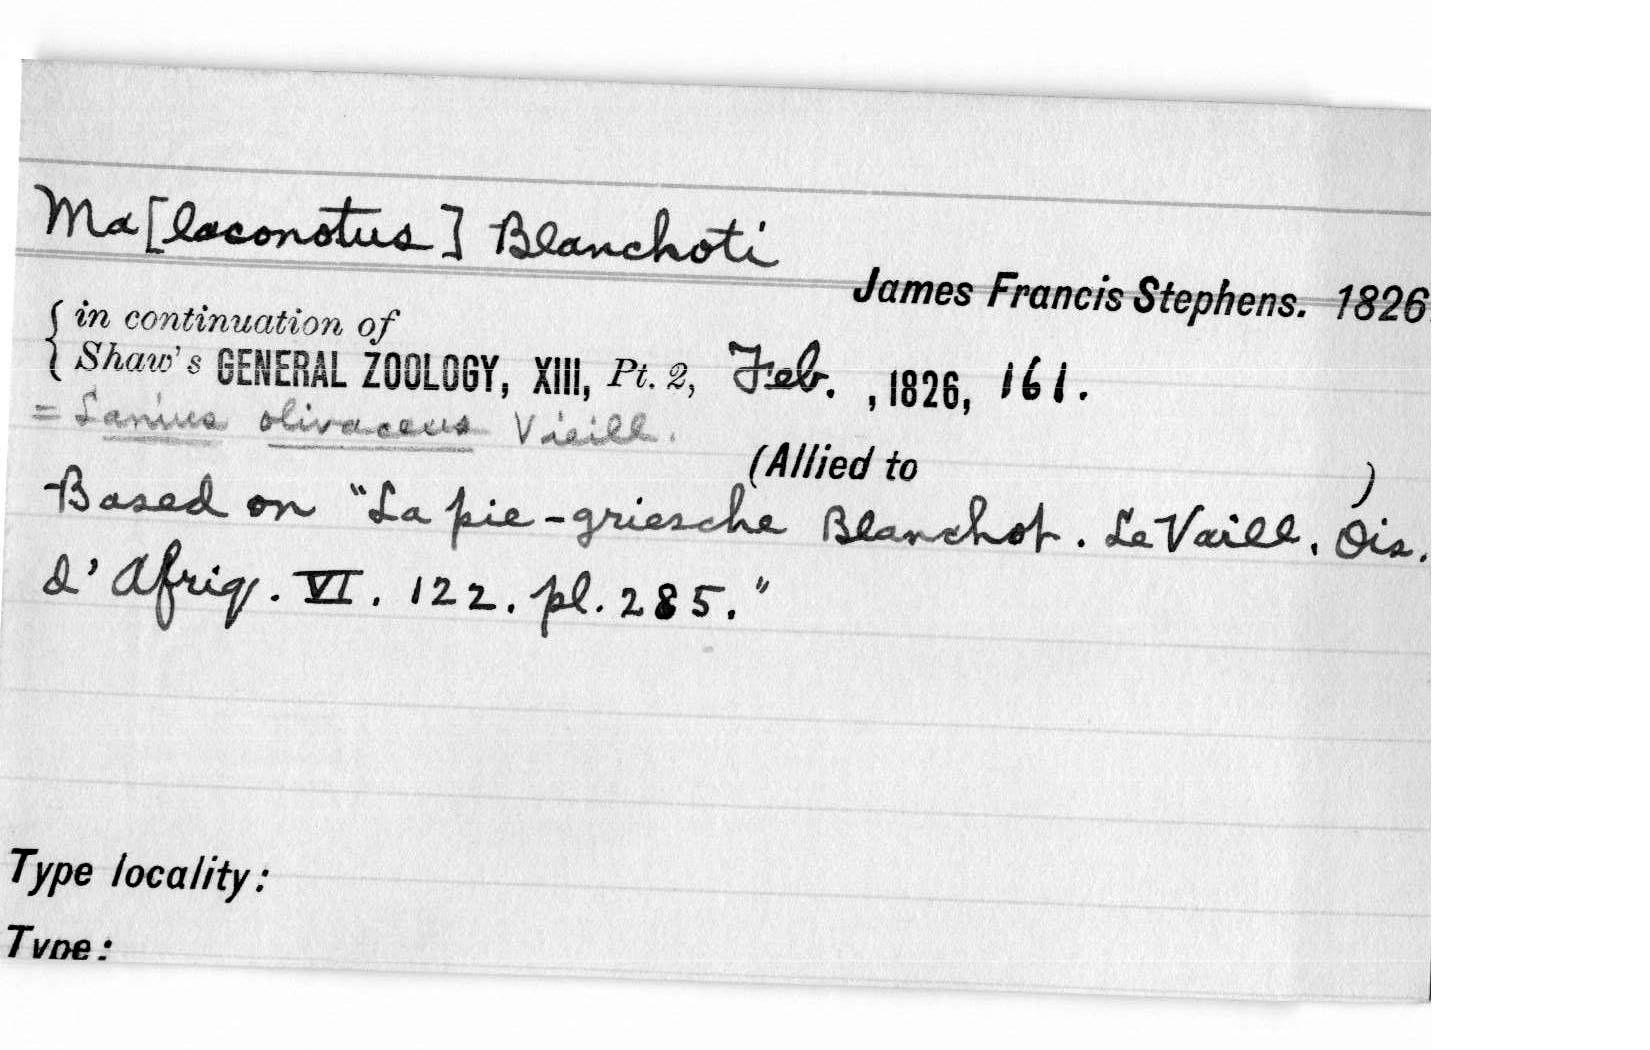 Ma[laconotus] Blanchoti
James Francis Stephens. 1826.
in continuation of
Shaw's GENERAL ZOOLOGY, XIII, Pt. 2, Feb. , 1826, 161.
= Lanius olivaceus Vieill.
(Allied to )
Based on "La pie-griesche Blanchot. Le Vaill. Ois.
d'Afriq. VI. 122. pl. 285."
Type locality:
Type: